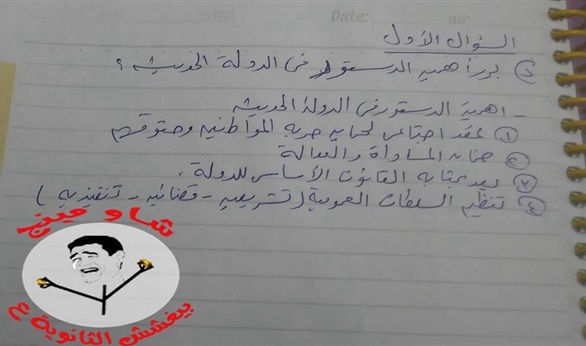 Date: no:
السؤال الأول
د) برر أهمية الدستور فى الدولة الحديثة ؟
- اهمية الدستور فى الدولة الحديثة
① عقد اجتماعى لحماية حرية المواطنين وحقوقهم
② ضمان المساواة والعدالة
③ يعد بمثابة القانون الأساسى للدولة.
④ تنظيم السلطات العمومية (تشريعية - قضائية - تنفيذية)
شاومينج
بيغشش الثانوية ع